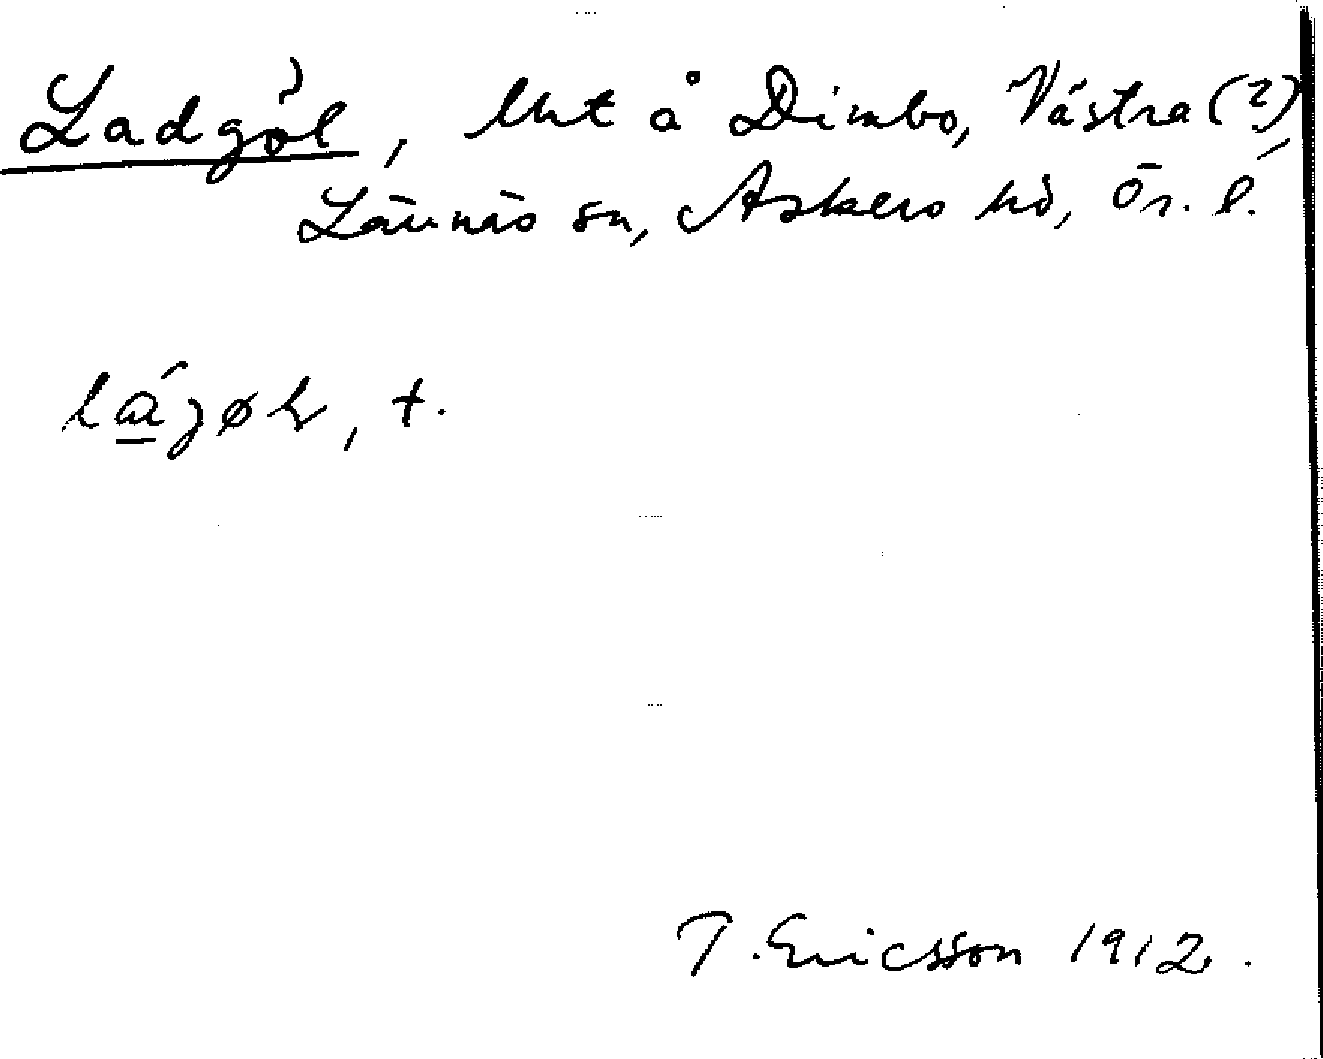 Ladgöl, lht å Dimbo, Västra (?)
Lännäs sn, Askers hd, Ör. l.
T. Ericsson 1912.